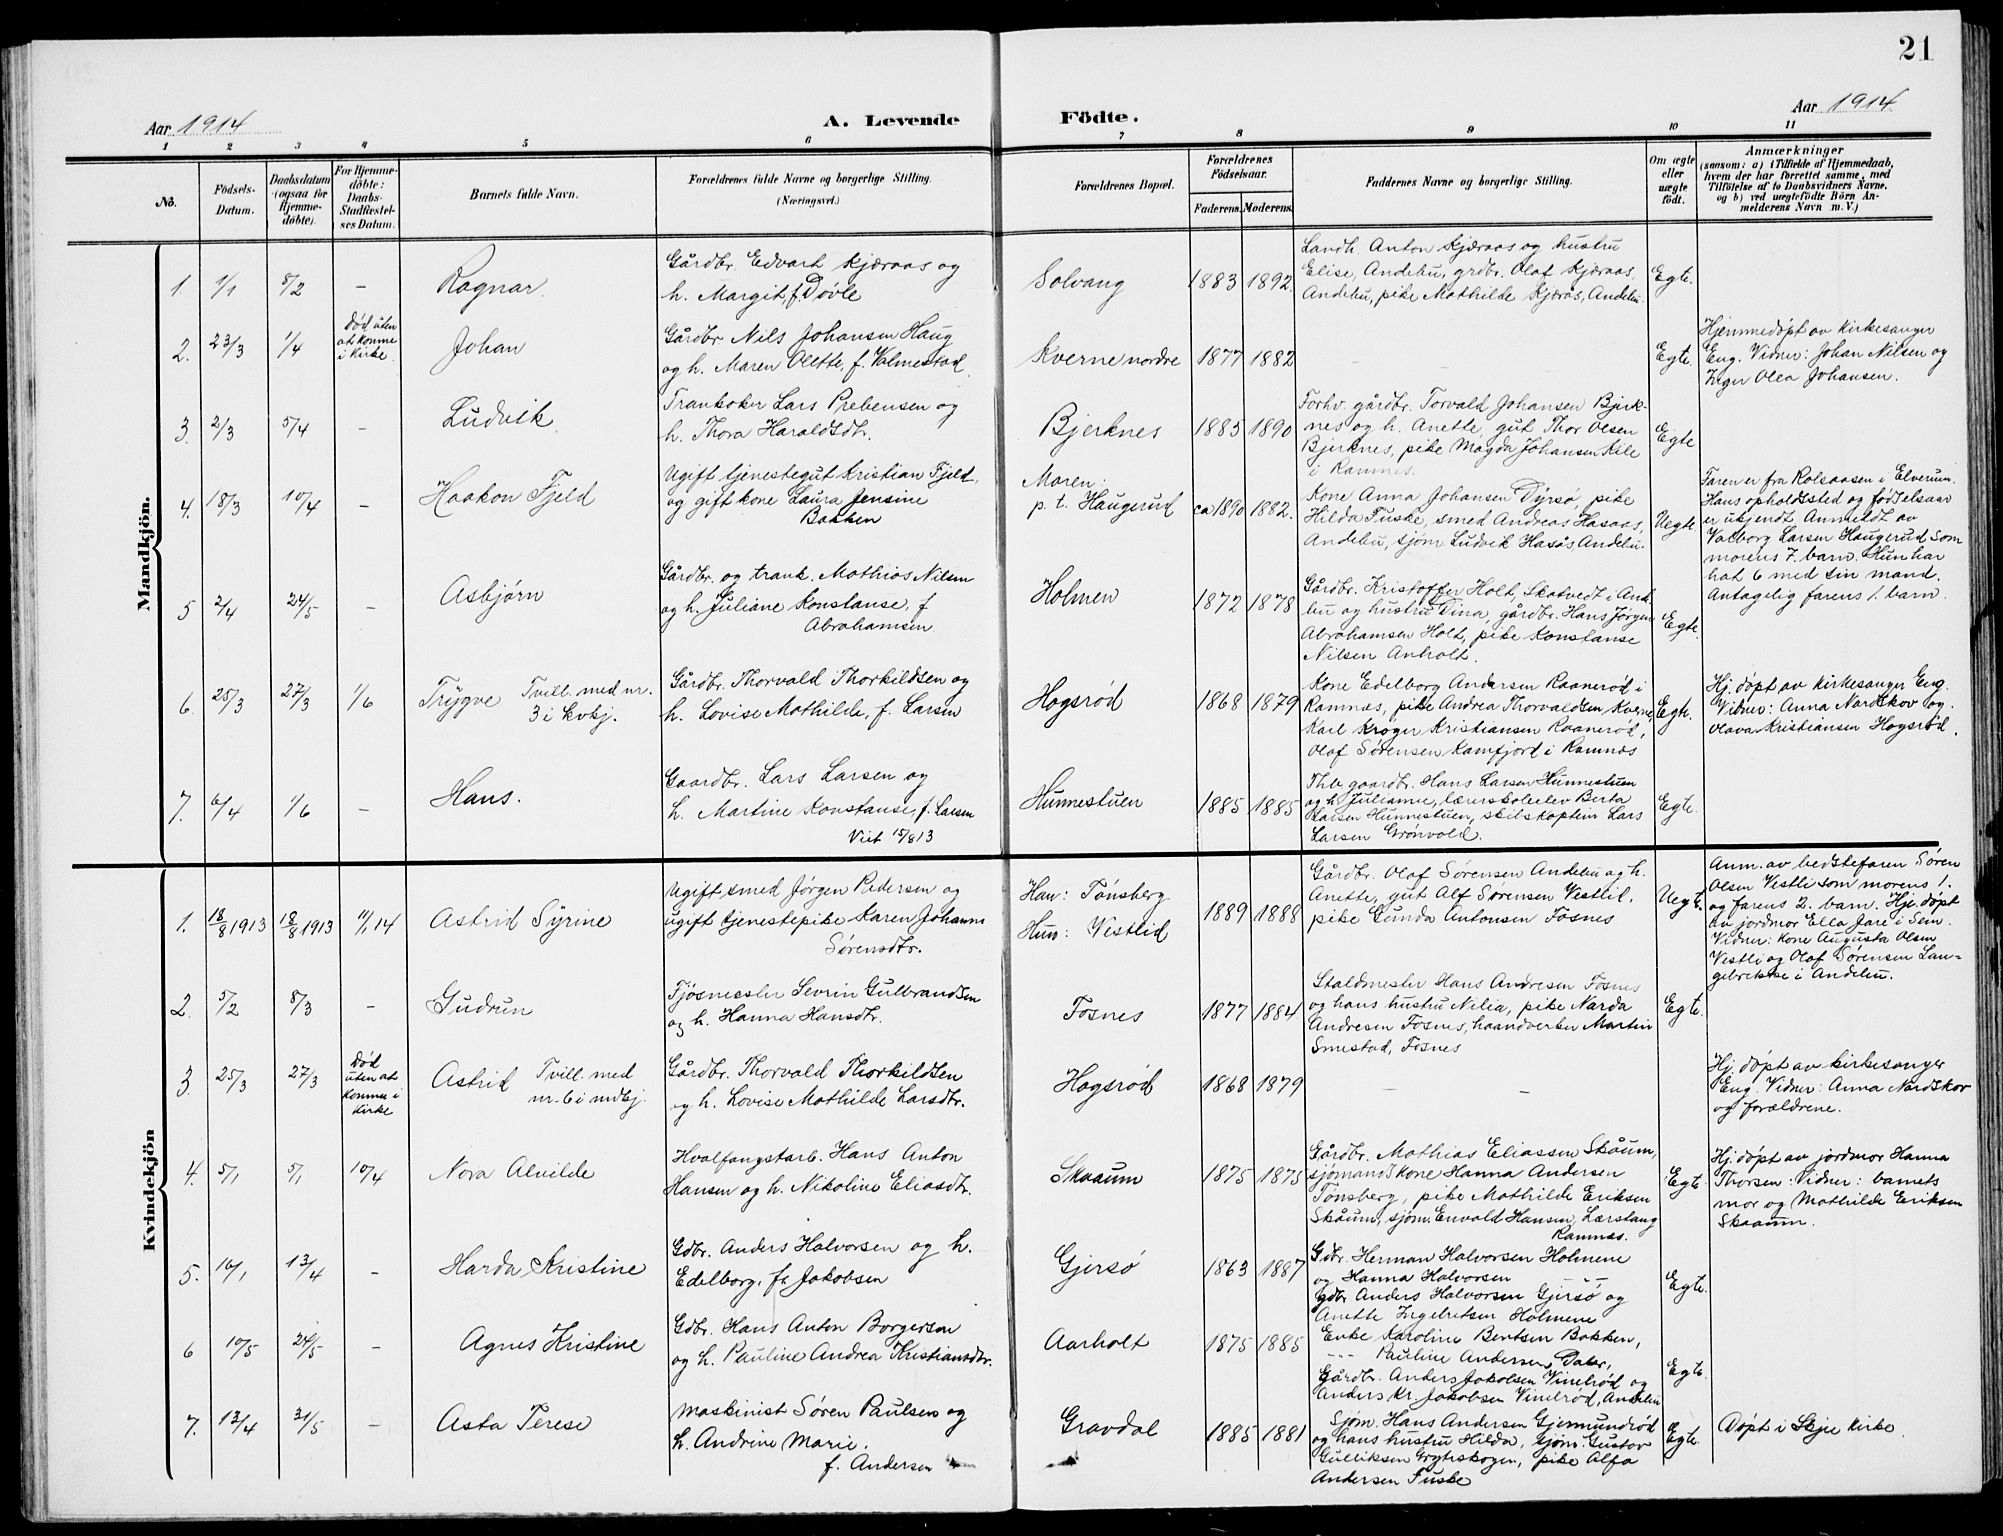 21
Aar 1914
A. Levende Födte.
Aar 1914
1 2 3 4 5 6 7 8 9 10 11
No.
Födsels-Datum.
Daabsdatum (ogsaa för Hjemmedöbte).
For Hjemmedöbte: Daabs-Stadfæstelses Datum.
Barnets fulde Navn.
Forældrenes fulde Navne og borgerlige Stilling. (Næringsvei.)
Forældrenes Bopæl.
Forældrenes Födselsaar.
Faderens. Moderens.
Faddernes Navne og borgerlige Stilling.
Om ægte eller uægte födt.
Anmærkninger
(saasom: a) i Tilfælde af Hjemmedaab, hvem der har forrettet samme, med Tilföielse af to Daabsvidners Navne, og b) ved uægtefödte Börn Anmelderens Navn m. V.)
Mandkjön.
1. 1/1 8/2 – Ragnar.
Gårdbr. Edvart Kjæraas og
h. Margit, f. Døvle
Solvang 1883 1892
Landh. Anton Kjæraas og hustru
Elise, Andebu, grdbr. Olaf Kjæraas,
Andebu, pike Mathilde Kjæraas, Andebu
Egte.
2. 23/3 1/4
Død uten
at komme
i kirke.
Johan
Gårdbr. Nils Johansen Haug
og h. Maren Olette, f. Valmestad.
Kverne nordre 1877 1882 –
Egte.
Hjemmedøpt av kirkesanger
Eng. Vidner: Johan Nilsen og
Inger Olea Johansen.
3. 2/3 5/4 – Ludvik
Trankoker Lars Prebensen og
h. Thora Haraldsdtr.
Bjerknes 1885 1890
Forhv. gårdbr. Torvald Johansen Bjerk-
nes og h. Anette, gut Thor Olsen
Bjerknes, pike Magda Johansen Kile
i Ramnes.
Egte
4. 18/3 10/4 – Haakon Fjeld
Ugift tjenestegut Kristian Fjeld
og gift kone Laura Jensine
Bakken
Moren:
p. t. Haugerud ca 1890 1882.
Kone Anna Johansen Dyrsø, pike
Hilda Fuske, smed Andreas Hasaas,
Andebu, sjøm. Ludvik Hasås Andebu.
Uegte
Faren er fra Kolsaasen i Elverum.
Hans opholdssted og fødselsaar
er ukjendt. Anmeldt av
Valborg Larsen Haugerud som
morens 7. barn. Hun har
hat 6 med sin mand.
Antagelig farens 1. barn.
5 2/4 24/5 – Asbjørn
Gårdbr. og trank. Mathias Nilsen
og h. Juliane Konstanse, f
Abrahamsen
Holmen 1872 1878
Gårdbr. Kristoffer Holt, Skatvedt i Ande-
bu og hustru Dina, gårdbr. Hans Jørgen
Abrahamsen Holt, pike Konstanse
Nilsen Anholt.
Egte.
6. 25/3 27/3 1/6 Trygve Tvill. med nr.
3 i kvkj.
Gårdbr. Thorvald Thorkildsen og
h. Lovise Mathilde, f. Larsen
Hogsrød 1868 1879
Kone Edelborg Andersen Raanerød i
Ramnes, pike Andrea Thorvaldsen Kverne,
Karl Krøger Kristiansen Raanerød,
Olaf Sørensen Kamfjord i Ramnes
Egte.
Hj. døpt av kirkesanger Eng.
Vidner: Anna Nardskov og
Olava Kristiansen Hogsrød.
7. 6/4 1/6 – Hans.
Gaardbr. Lars Larsen og
h. Martine Konstanse, f. Larsen
Viet 15/8 13
Hunnestuen 1885 1885
gaardbr. Hans Larsen Hunnestuen
og h. Julianne, lærerskoleelev Berta
Larsen Hunnestuen, skibskaptein Lars
Larsen Grønvold.
Egte.
Kvindekjön
1. 18/8 1913 18/8 1913 11/1 14 Astrid Syrine
Ugift smed Jørgen Pedersen og
ugift tjenestepike Karen Johanne
Sørensdtr.
Han: Tønsberg
Hun: Vestlid
1889 1888
Gårdbr. Olaf Sørensen Andebu og h.
Anette, gut Alf Sørensen Vestlil,
pike Gunda Antonsen Fosnes
Uegt.
Anm. av bedstefaren Søren
Olsen Vestli som morens 1.
og farens 2. barn. Hje. døpt
av jordmor Ella Jare i Sem.
Vidner: Kone Augusta Olsen
Vestli og Olaf Sørensen Lan-
gebrekke i Andebu.
2. 5/2 8/3 – Gudrun
Fjøsmester Sevrin Gulbrandsen
og h. Hanna Hansdtr.
Fosnes 1877 1884
Staldmester Hans Andresen Fosnes
og hans hustru Nilia, pike Narda
Andresen Fosnes, haandverker Martin
Smestad, Fosnes
Egte.
3. 25/3 27/3
Død
uten at
komme i
kirke
Astrid Tvill. med
nr. 6 i mdkj.
Gårdbr. Thorvald Thorkildsen
og h. Lovise Mathilde Larsdtr.
Hogsrød 1868 1879 – –
Hj. døpt av kirkesanger
Eng. Vidner: Anna Nardskov
og forældrene.
4. 5/1 5/1 10/4 Nora Alvilde
Hvalfangstarb. Hans Anton
Hansen og h. Nikoline Eliasdtr.
Skaaum 1875 1875
Gårdbr. Mathias Eliassen Skåum,
sjømandskone Hanna Andersen
Tønsberg, pike Mathilde Eriksen
Skåum, sjøm. Envald Hansen, Lærstang
Ramnes.
Egte.
Hj. døpt av jordmor Hanna
Thorsen. Vidner: barnets
mor og Mathilde Eriksen
Skaaum.
5. 16/1 13/4 – Harda Kristine
Gdbr. Anders Halvorsen og h.
Edelborg, f. Jakobsen
Gjersø 1863 1887
Gdbr. Herman Halvorsen Holmene
og Hanna Halvorsen – –
gdbr Anders Halvorsen Gjersø og
Anette Ingebretsen Holmene
Egte.
6 10/5 24/5 – Agnes Kristine
Gdbr. Hans Anton Borgersen
og h. Pauline Andrea Kristiansdtr.
Aarholt 1875 1885
Enke Karoline Bentsen Bakken,
--- Pauline Andersen, Daler,
Gårdbr. Anders Jakobsen Vinelrød og
Anders Kr. Jakobsen Vinelrød, Andebu
Egte.
7. 13/4 31/5 – Asta Terese
Maskinist Søren Paulsen og
h. Andrine Marie.
f. Andersen
Gravdal 1885 1881
Sjøm. Hans Andersen Gjermundrød
og hans hustru Hilda, sjøm. Gustav
Gulliksen Gryteskogen, pike Alfa
Andersen Fuske
Egte.
Døpt i Skje kirke